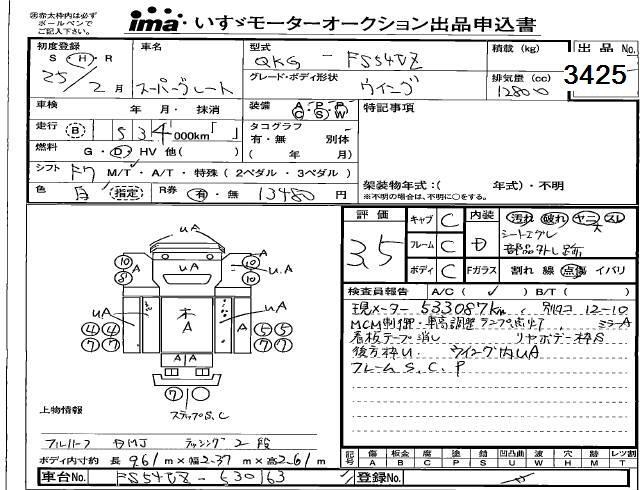 ㊟赤太枠内は必ず ボールペンで ご記入下さい。
ima いすゞモーターオークション出品申込書
初度登録 車名 型式 QKG - FS54VZ 積載(kg) 出品No.
S・H・R 25/2月 スーパーグレート グレード・ボディ形状 ウイング 排気量(cc) 12800 3425
車検 年 月・抹消 装備 A/C P/S P/W 特記事項
走行 B 534,000km「 」 タコグラフ 有・無 別体
燃料 G・D・HV 他( ) ( 年 月)
シフト F7 M/T・A/T・特殊(2ペダル・3ペダル)
架装物年式:( 年式)・不明
色 白 指定 R券 有・無 13480円 ※不明の場合は、不明に○をする。
評価 3.5 キャブ C 内装 D 汚れ 破れ ヤニ スレ 大
フレーム C シートエグレ 部品外し跡
ボディ C Fガラス 割れ 線 点傷 イバリ
検査員報告 A/C(✓) B/T( )
現メーター 533087km、別タコ 12-10
MCM制御・車高調整ランプ点灯 ミラーA
看板テープ消し リヤボデー枠S
後方枠U ウイング内UA
フレームS.C.P
uA A 10 8 uA A u.A 10 10
uA 4 4 7 7 木 A uA 5 5 7 7
A A
7
ステップS.C
上物情報
フルハーフ DMJ ラッシング2段
ボディ内寸約 長 9.61 m×幅 2.37 m×高 2.61 m
記号 傷 A 板金 B 腐 C 塗 P 錆 S 凹凸曲 U 波 W 穴 H 跡 M レツ割 T
車台No. FS54VZ-530163 登録No.